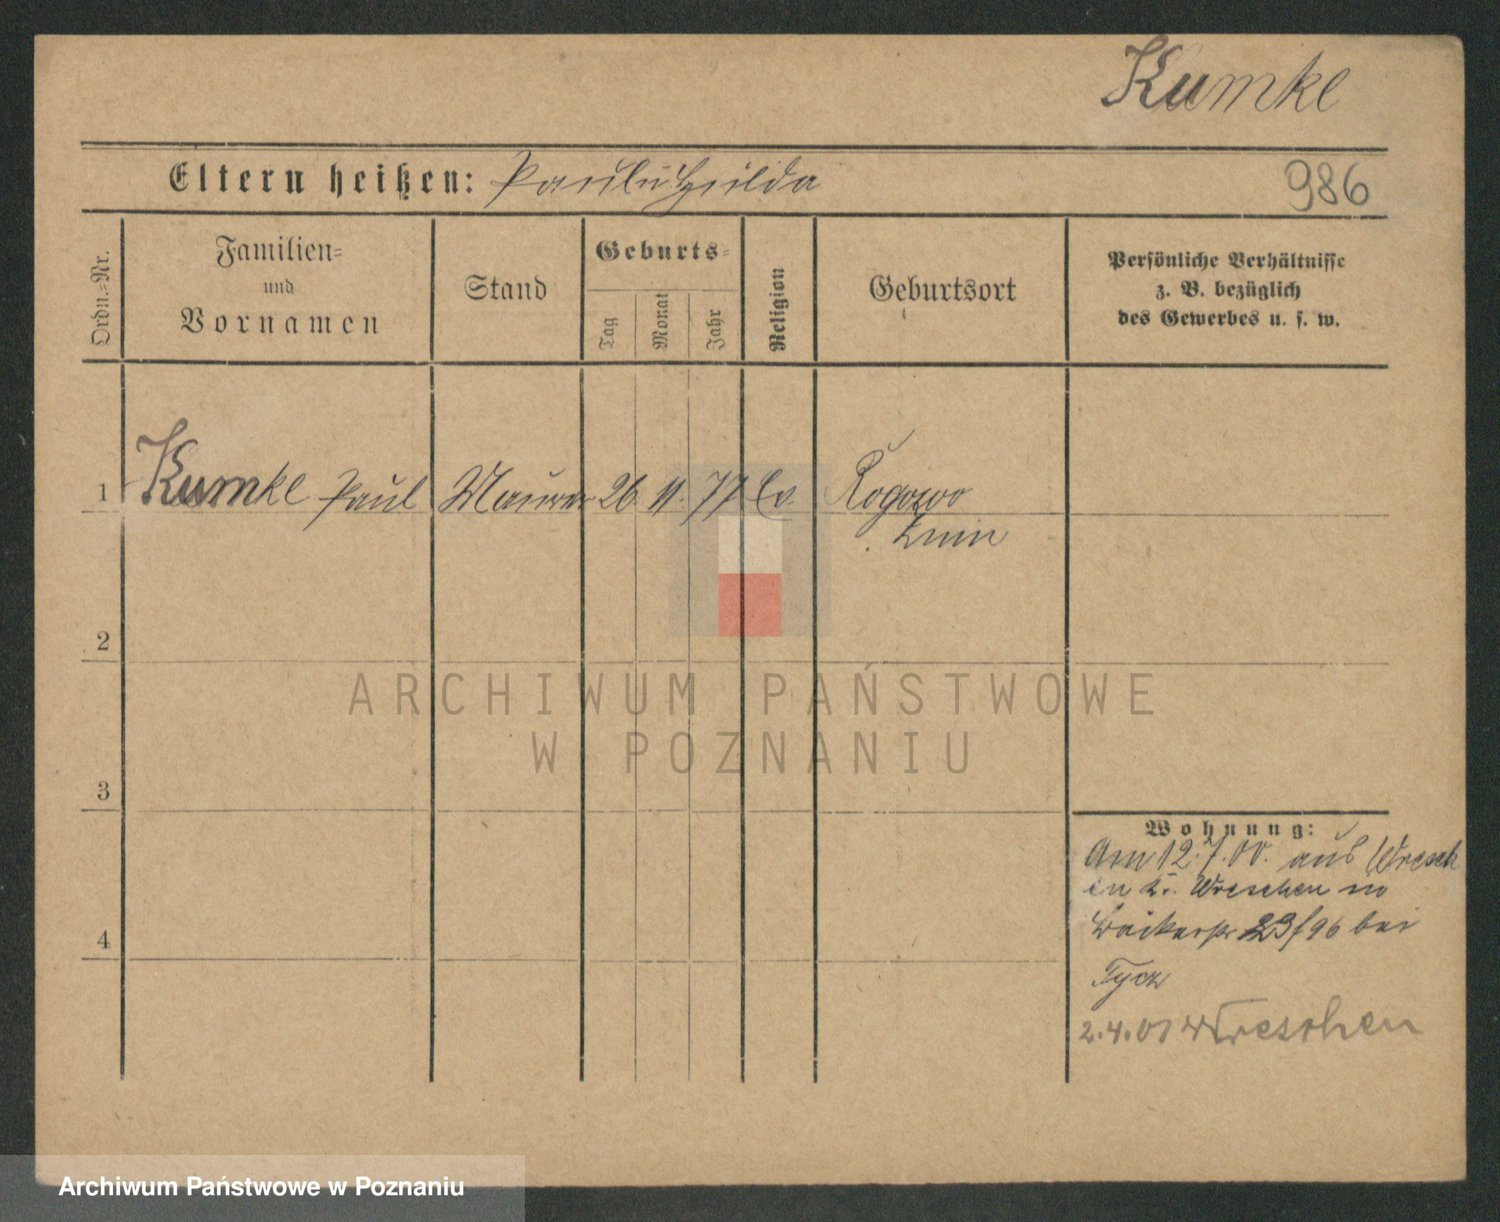 Kumke
Eltern heißen: Paul u Hulda
986
Ordn.=Nr.
Familien=
und
Vornamen
Stand
Geburts=
Tag
Monat
Jahr
Religion
Geburtsort
Persönliche Verhältnisse
z. B. bezüglich
des Gewerbes u. s. w.
1 Kumke Paul Maurer 26. 11. 77 Ev. Rogowo
Znin
2
ARCHIWUM PAŃSTWOWE
W POZNANIU
3
Wohnung:
Am 12.7.00. aus Wresch
en Kr. Wreschen
Bäckerstr 23/96 bei
Tycz
2.4.01 Wreschen
4
Archiwum Państwowe w Poznaniu